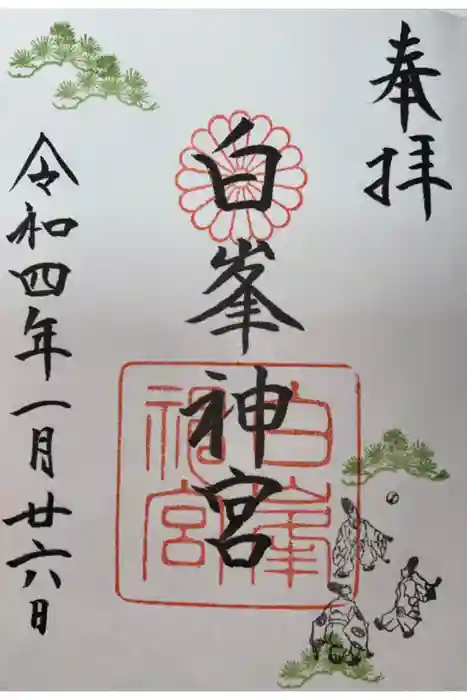 奉拝
白峯神宮
白峯
神宮
令和四年一月廿六日